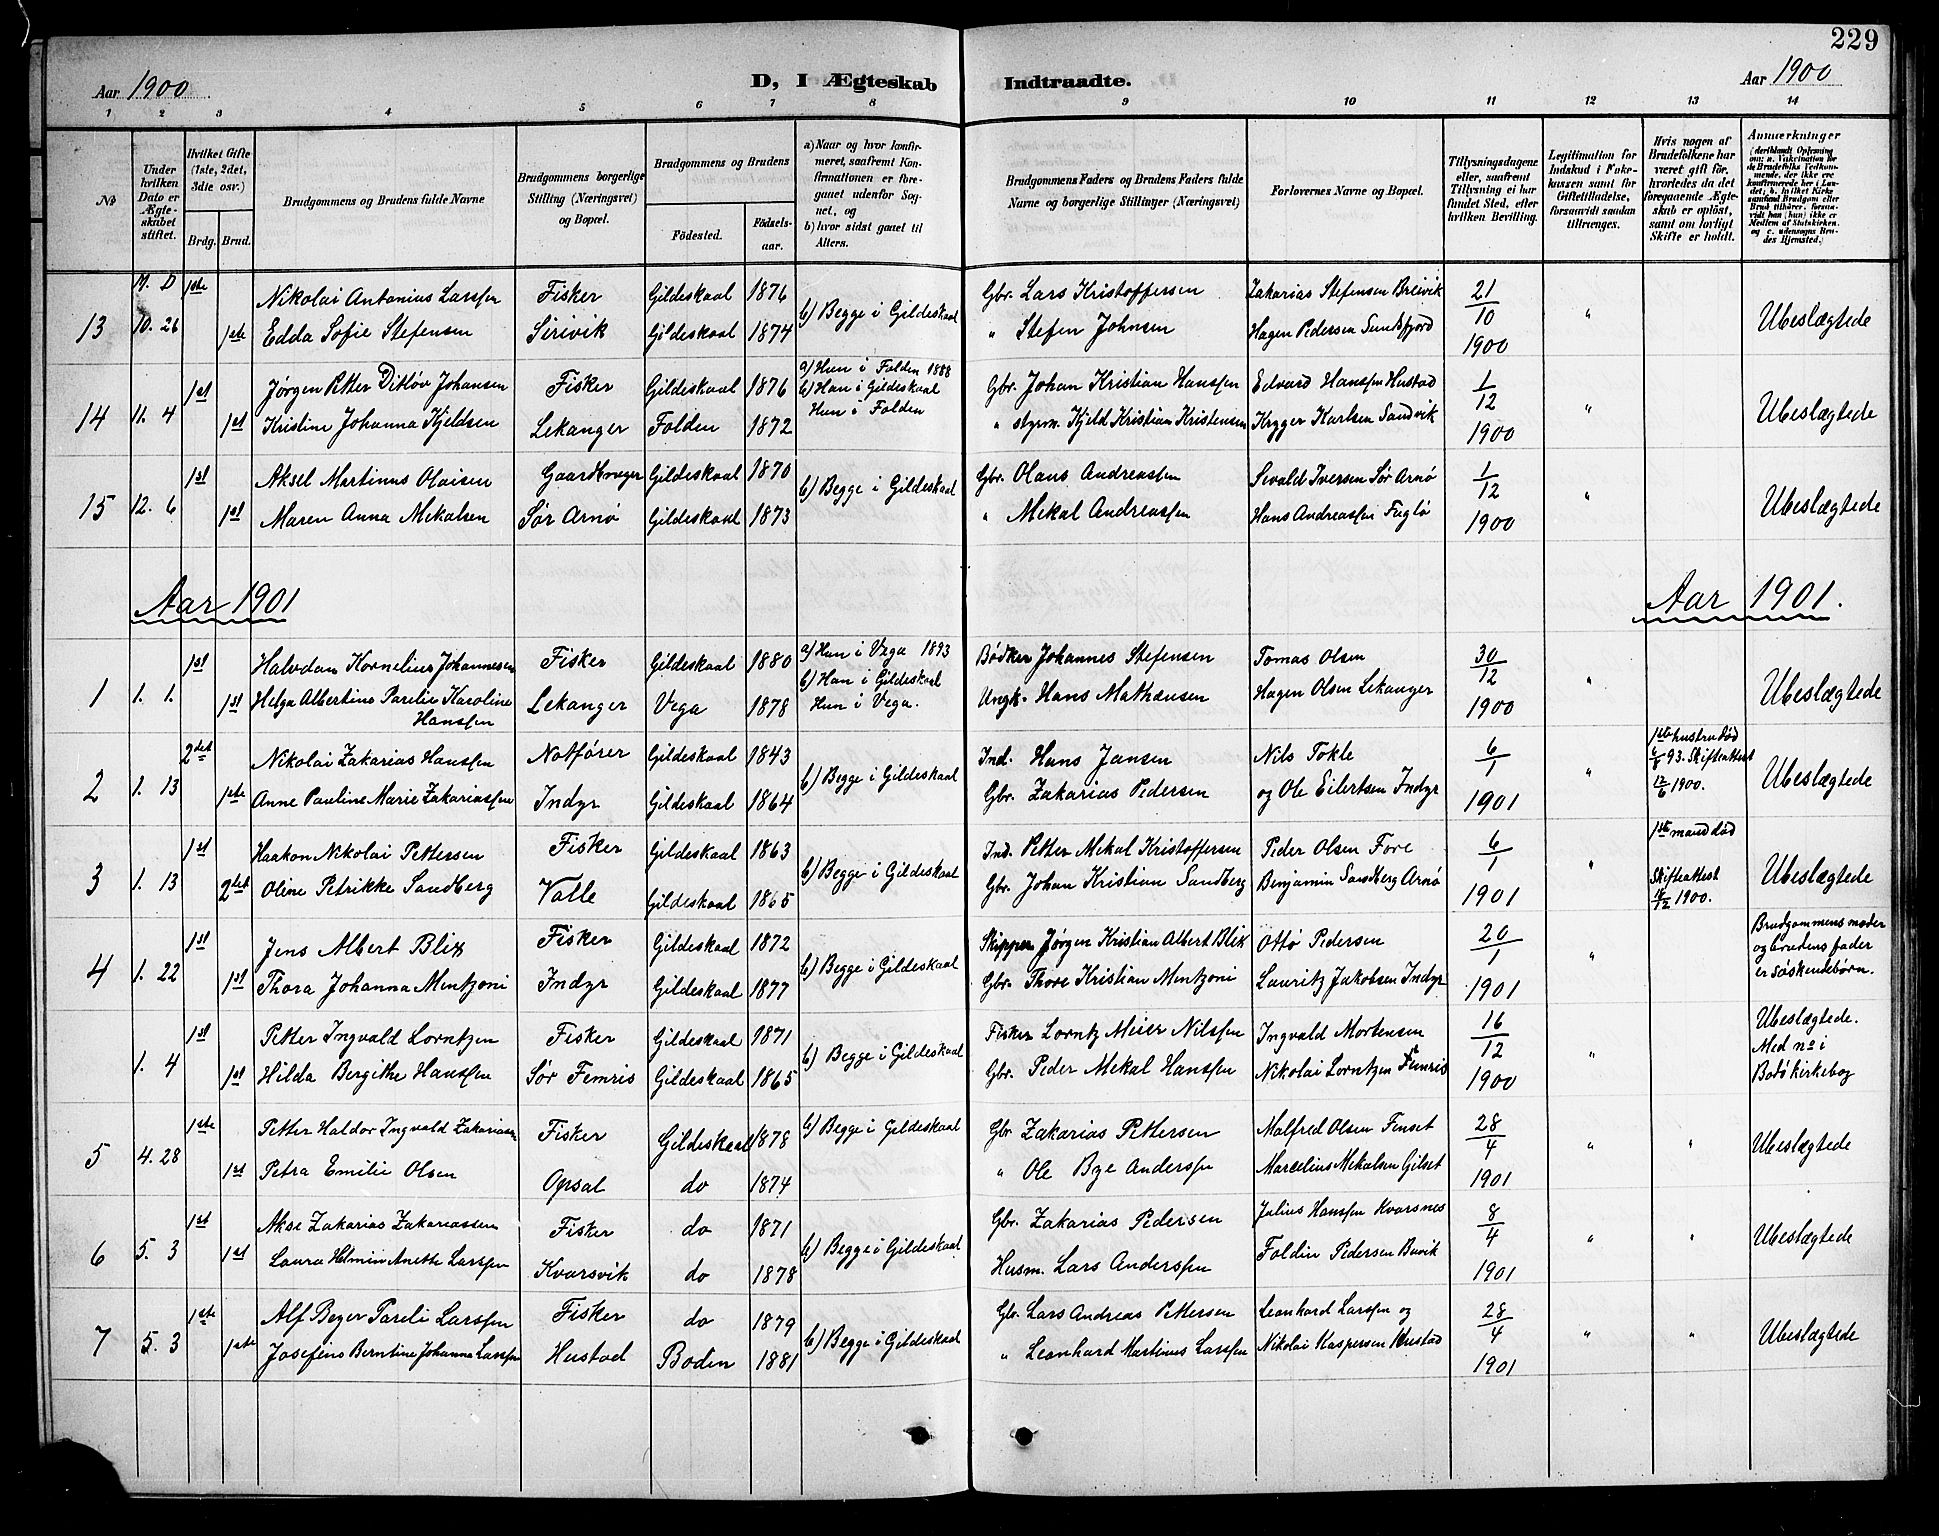 229
Aar 1900
D, I Ægteskab Indtraadte.
Aar 1900
1 2 3 4 5 6 7 8 9 10 11 12 13 14
No
Under hvilken Dato er Ægteskabet stiftet.
Hvilket Gifte (1ste, 2det, 3die osv.)
Brdg. Brud.
Brudgommens og Brudens fulde Navne
Brudgommens borgerlige Stilling (Næringsvei) og Bopæl.
Brudgommens og Brudens
Fødested.
Fødselsaar.
a) Naar og hvor konfirmeret, saafremt Konfirmationen er foregaaet udenfor Sognet, og
b) hvor sidst gaaet til Alters.
Brudgommens Faders og Brudens Faders fulde Navne og borgerlige Stillinger (Næringsvei)
Forlovernes Navne og Bopæl.
Tillysningsdagene eller, saafremt Tillysning ei har fundet Sted, efter hvilken Bevilling.
Legitimation for Indskud i Enkekassen samt for Giftetilladelse, forsaavidt saadan tiltrænges.
Hvis nogen af Brudefolkene har været gift før, hvorledes da det foregaaende Ægteskab er opløst, samt om lovligt Skifte er holdt.
Anmærkninger
M. D 1ste Nikolai Antonius Larssen Fisker Gildeskaal 1876 b) Begge i Gildeskaal Gbr. Lars Kristoffersen Zakarias Stefensen Breivik 21/10 1900 " Ubeslægtede
13 10. 26 1ste Edda Sofie Stefensen Sirivik Gildeskaal 1874 " Stefen Johnsen Hagen Pedersen Sundsfjord
1st Jørgen Petter Ditløv Johansen Fisker Gildeskaal 1876 a) Hun i Folden 1888 b) Han i Gildeskaal Hun i Folden Gbr. Johan Kristian Hanssen Edvard Hanssen Hustad 1/12 1900 " Ubeslægtede
14 11. 4 1st Kristine Johanna Kjeldsen Lekanger Folden 1872 " styrm. Kjeld Kristian Kristensen Krygger Karlsen Sandvik
1st Aksel Martinus Olaisen Gaardbruger Gildeskaal 1870 b) Begge i Gildeskaal Gbr. Olaus Andreassen Sevald Iversen Sør Arnø 1/12 1900 " Ubeslægtede
15 12. 6 1st Maren Anna Mekalsen Sør Arnø Gildeskaal 1873 " Mekal Andreassen Hans Andreassen Fuglø
Aar 1901 Aar 1901.
1st Halvdan Kornelius Johannesen Fisker Gildeskaal 1880 a) Hun i Vega 1893 b) Han i Gildeskaal Hun i Vega. Bødker Johannes Stefensen Tomas Olsen 30/12 1900 " Ubeslægtede
1 1. 1. 1st Helga Albertine Parelie Karoline Hanssen Lekanger Vega 1878 Ungk. Hans Mathæusen Hagen Olsen Lekanger
2det Nikolai Zakarias Hanssen Notfører Gildeskaal 1843 b) Begge i Gildeskaal Ind. Hans Jansen Nils Tokle 6/1 1901 " 1ste hustru død 6/8 93. Skifteattest 12/6 1900. Ubeslægtede
2 1. 13 1ste Anne Pauline Marie Zakariassen Indyr Gildeskaal 1864 Gbr. Zakarias Pedersen og Ole Eilertsen Indyr
1st Haakon Nikolai Pettersen Fisker Gildeskaal 1863 b) Begge i Gildeskaal Ind. Petter Mekal Kristoffersen Peder Olsen Fore 6/1 1901 " 1ste mand død Skifteattest 15/12 1900. Ubeslægtede
3 1. 13 2det Oline Petrikke Sandberg Valle Gildeskaal 1865 Gbr. Johan Kristian Sandberg Benjamin Sandberg Arnø
1st Jens Albert Blix Fisker Gildeskaal 1872 b) Begge i Gildeskaal Skipper Jørgen Kristian Albert Blik Otto Pedersen 20/1 1901 " Brudgommens moder og brudens fader er søskendebørn.
4 1. 22 1st Thora Johanna Mentzoni Indyr Gildeskaal 1877 Gbr. Thore Kristian Mentzoni Lauritz Jakobsen Indyr
1st Petter Ingvald Lorntzen Fisker Gildeskaal 1871 b) Begge i Gildeskaal Fisker Lorntz Meier Nilssen Ingvald Mortensen 16/12 1900 " Ubeslægtede. Med no i Bodø kirkebog
1. 4 1st Hilda Bergithe Hanssen Sør Femris Gildeskaal 1865 Gbr. Peder Mekal Hanssen Nikolai Lorntzen Femris
1ste Petter Haldor Ingvald Zakariasen Fisker Gildeskaal 1878 b) Begge i Gildeskaal Gbr Zakarias Pettersen Malfred Olsen Finset 28/4 1901 " " Ubeslægtede
5 4. 28 1st Petra Emilie Olsen Opsal do 1874 " Ole Bye Anderssen Marcelius Mekalsen Gilset
1st Akse Zakarias Zakariassen Fisker do 1871 b) Begge i Gildeskaal Gbr. Zakarias Pedersen Julius Hanssen Kvarsnes 8/4 1901 " " Ubeslægtede
6 5. 3 1st Laura Helmine Anette Larssen Kvarsvik do 1878 Husm. Lars Anderssen Foldin Pedersen Buvik
1ste Alf Beyer Pareli Larssen Fisker do 1879 b) Begge i Gildeskaal Gbr. Lars Andreas Pettersen Leonhard Larssen og 28/4 1901 " " Ubeslægtede
7 5. 3 1ste Josefine Berntine Johanna Larssen Hustad Bodin 1881 " Leonhard Martinus Larssen Nikolai Kaspersen Hustad